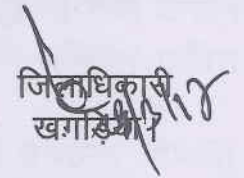 जिलाधिकारी
खगड़िया।